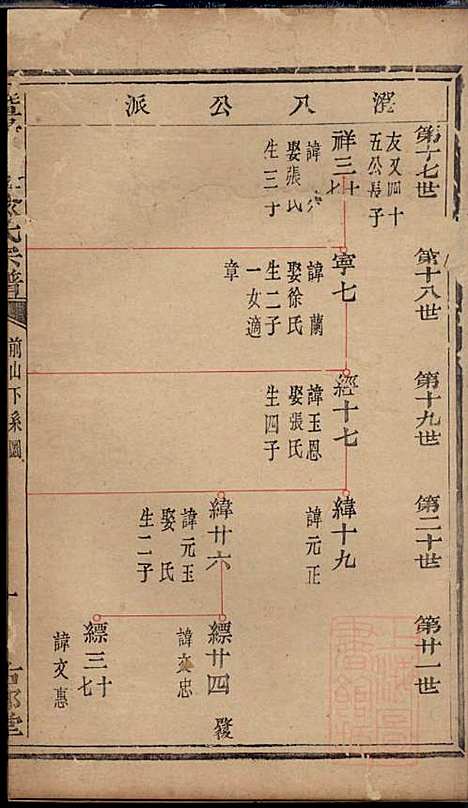 澄八公派
第十七世
友叉四十
五公長子
祥三十七
諱
娶張氏
生三子
第十八世
寧七
諱蘭
娶徐氏
生二子
一女適
章
第十九世
經十七
諱玉恩
娶張氏
生四子
第二十世
緯十九
諱元正
緯廿六
諱元玉
娶 氏
生二子
第廿一世
縹廿四
諱文忠
縹三十七
諱文惠
氏宗譜
前山下系圖